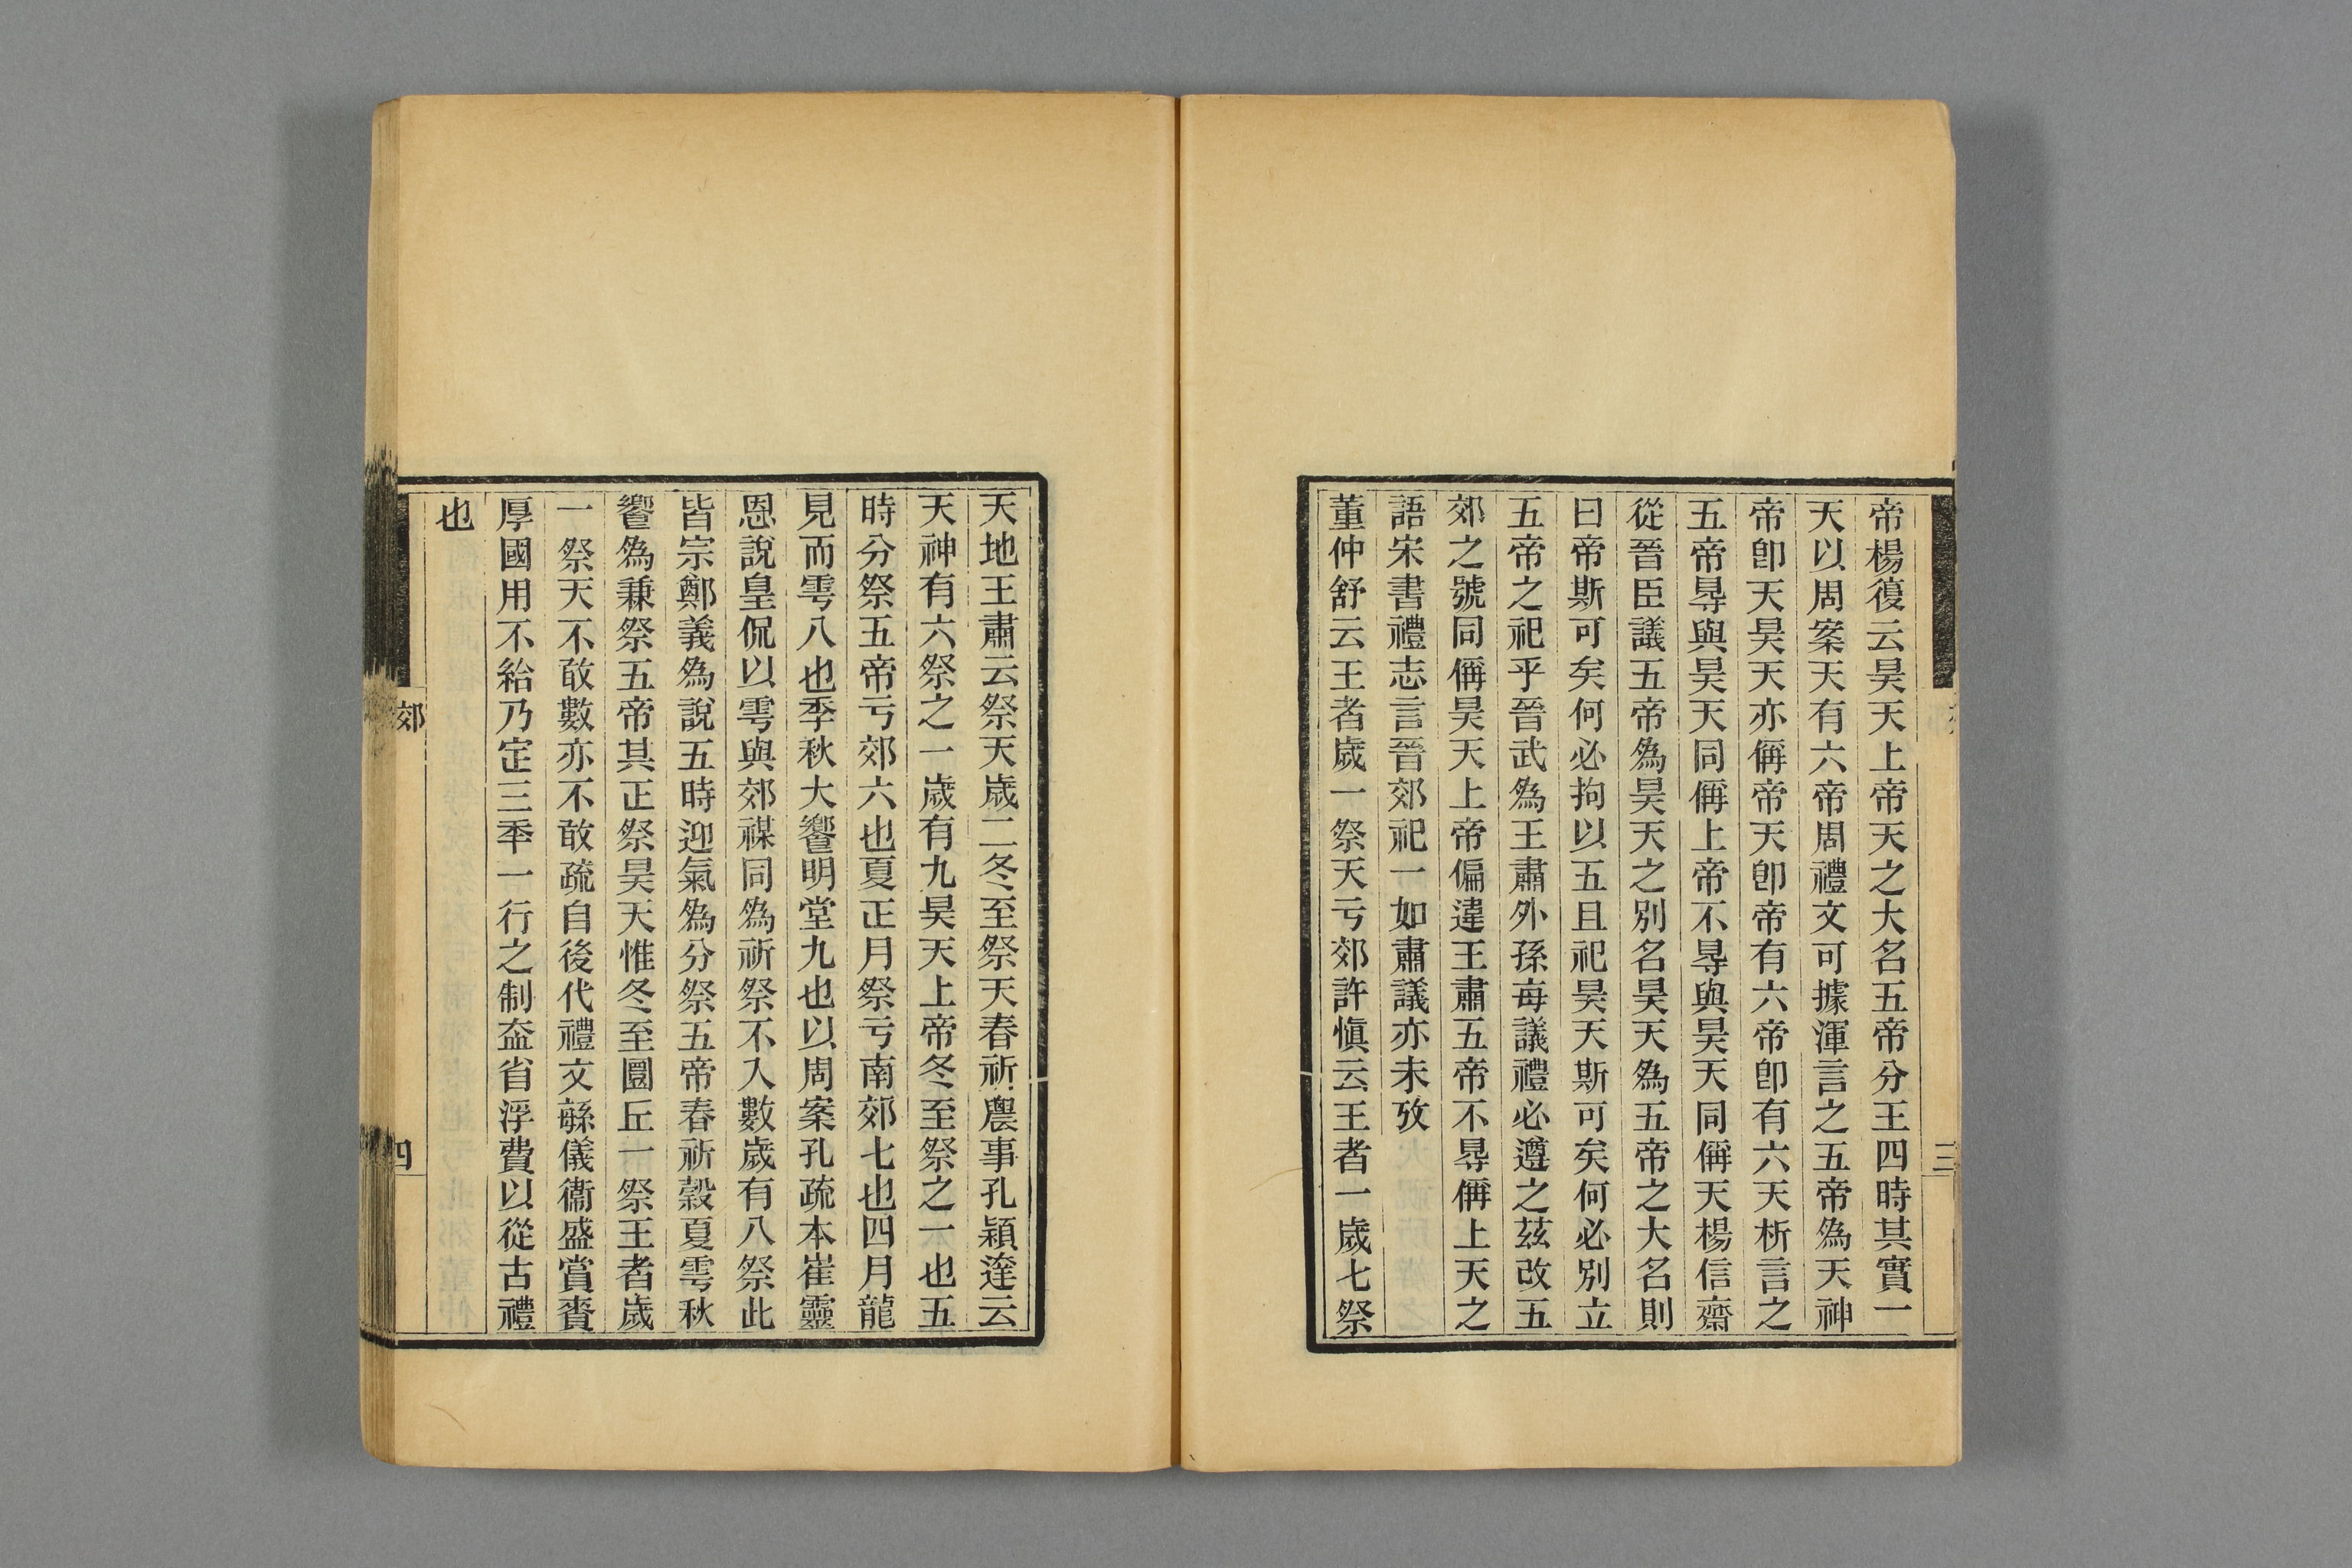 帝楊復云昊天上帝天之大名五帝分王四時其實一
天以周案天有六帝周禮文可據渾言之五帝為天神
帝卽天昊天亦偁帝天卽帝有六帝卽有六天析言之
五帝㝵與昊天同偁上帝不㝵與昊天同偁天楊信齋
從晉臣議五帝為昊天之別名昊天為五帝之大名則
曰帝斯可矣何必拘以五且祀昊天斯可矣何必別立
五帝之祀乎晉武為王肅外孫每議禮必遵之茲改五
郊之號同偁昊天上帝偏違王肅五帝不㝵偁上天之
語宋書禮志言晉郊祀一如肅議亦未攷
董仲舒云王者歲一祭天亏郊許愼云王者一歲七祭
三
天地王肅云祭天歲二冬至祭天春祈農事孔穎達云
天神有六祭之一歲有九昊天上帝冬至祭之一也五
時分祭五帝亏郊六也夏正月祭亏南郊七也四月龍
見而雩八也季秋大饗明堂九也以周案孔疏本崔靈
恩說皇侃以雩與郊禖同為祈祭不入數歲有八祭此
皆宗鄭義為說五時迎氣為分祭五帝春祈穀夏雩秋
饗為兼祭五帝其正祭昊天惟冬至圜丘一祭王者歲
一祭天不敢數亦不敢疏自後代禮文緐儀衞盛賞賚
厚國用不給乃定三秊一行之制葢省浮費以從古禮
也
郊
四